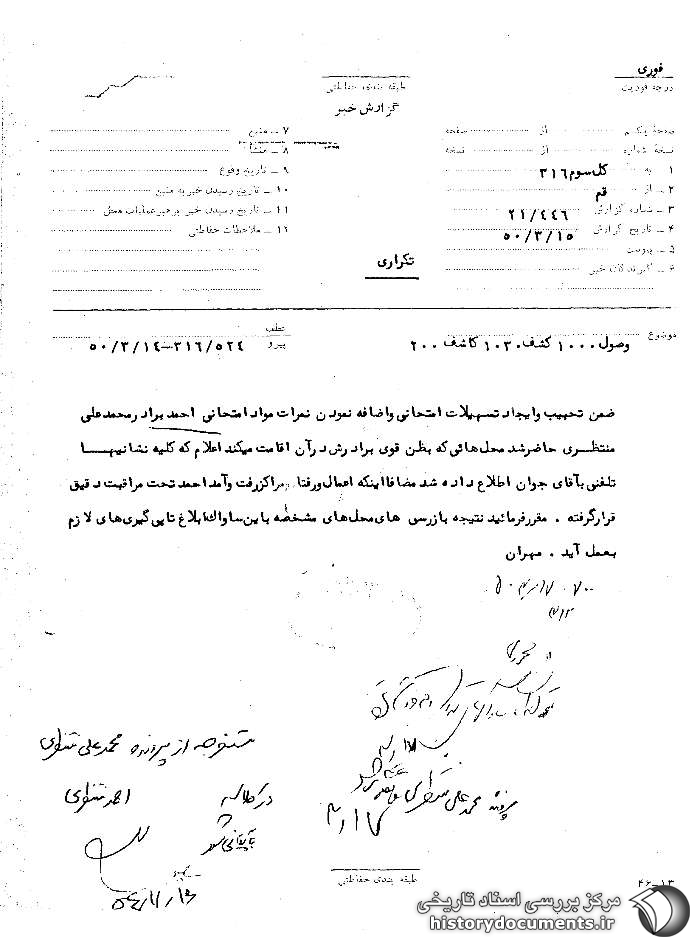 فوری
درجه فوریت
طبقه بندی حفاظتی
گزارش خبر
صفحه یکم از صفحه
نسخه شماره از نسخه
۱ - به کل سوم ۳۱۶
۲ - از قم
۳ - شماره گزارش ۲۱/۴۴۶
۴ - تاریخ گزارش ۵۰/۳/۱۵
۵ - پیوست
۶ - گیرندگان خبر
۷ - منبع
۸ - منشاء
۹ - تاریخ وقوع
۱۰ - تاریخ رسیدن خبر به منبع
۱۱ - تاریخ رسیدن خبر برهبر عملیات محل
۱۲ - ملاحظات حفاظتی
تکراری
موضوع وصول ۱۰۰۰ کشف ۱۰۳۰ کاشف ۲۰۰
عطف
پیرو ۳۱۶/۵۲۴-۵۰/۳/۱۴
ضمن تحبیب وایجاد تسهیلات امتحانی واضافه نمودن نمرات مواد امتحانی احمد برادر محمدعلی
منتظری حاضر شد محل هائی که بظن قوی برادرش در آن اقامت میکند اعلام که کلیه نشانیها
تلفنی بآقای جوان اطلاع داده شد مضافا اینکه اعمال ورفتار مراکز رفت وآمد احمد تحت مراقبت دقیق
قرار گرفته . مقرر فرمائید نتیجه بازرسی های محل های مشخصه باین ساواک ابلاغ تا پی گیری های لازم
بعمل آید . مهران
مستخرجه از پرونده محمد علی منتظری
در کلاسه احمد منتظری
بایگانی شود
پرونده محمد علی منتظری
طبقه بندی حفاظتی
۴۶-۱۳
مرکز بررسی اسناد تاریخی
historydocuments.ir